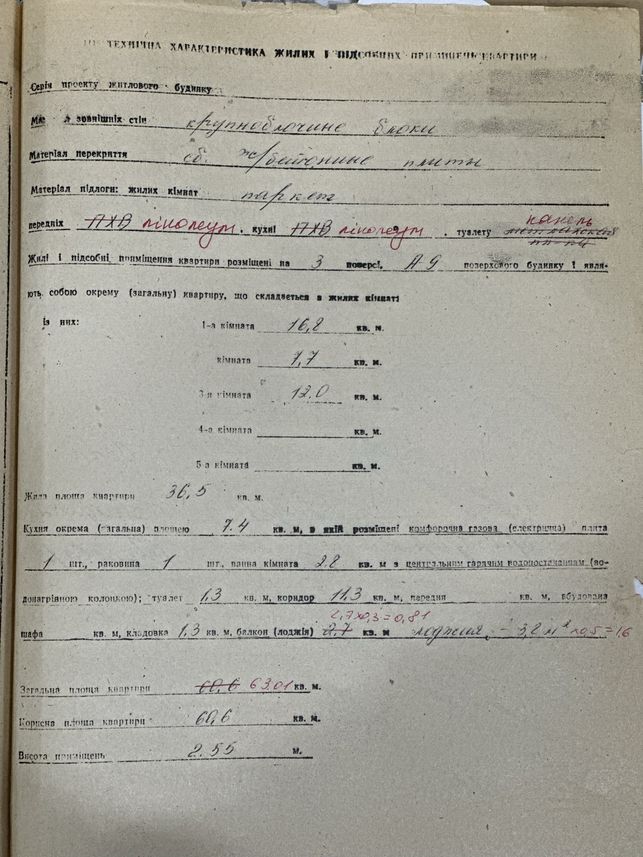 ТЕХНІЧНА ХАРАКТЕРИСТИКА ЖИЛИХ І ПІДСОБНИХ ПРИМІЩЕНЬ КВАРТИРИ
Серія проекту житлового будинку
зовнішніх стін крупноблочные блоки
Матеріал перекриття сб. ж/бетонные плиты
Матеріал підлоги: жилих кімнат паркет
передніх ПХВ лінолеум, кухні ПХВ лінолеум, туалету
Жилі і підсобні приміщення квартири розміщені на 3 поверсі, А-9 поверхового будинку і явля-
ють собою окрему (загальну) квартиру, що складається з жилих кімнат:
із них: 1-а кімната 16,8 кв. м.
кімната 7,7 кв. м.
3-я кімната 12,0 кв. м.
4-а кімната кв. м.
5-а кімната кв. м.
Жила площа квартири 36,5 кв. м.
Кухня окрема (загальна) площею 7.4 кв. м, в якій розміщені комфорочна газова (електрична) плита
1 шт., раковина 1 шт., ванна кімната 2.8 кв. м з центральним гарячим водопостачанням (во-
донагрівною колонкою); туалет 1,3 кв. м, коридор 11,3 кв. м, передня кв. м, вбудована
2,7х0,3=0,81
шафа кв. м, кладовка 1,3 кв. м, балкон (лоджія) 2,7 кв. м лоджия - 3,2 м² х0,5=1,6
Загальна площа квартири 60,6 63.01 кв. м.
Корисна площа квартири 60,6 кв. м.
Висота приміщень 2.55 м.